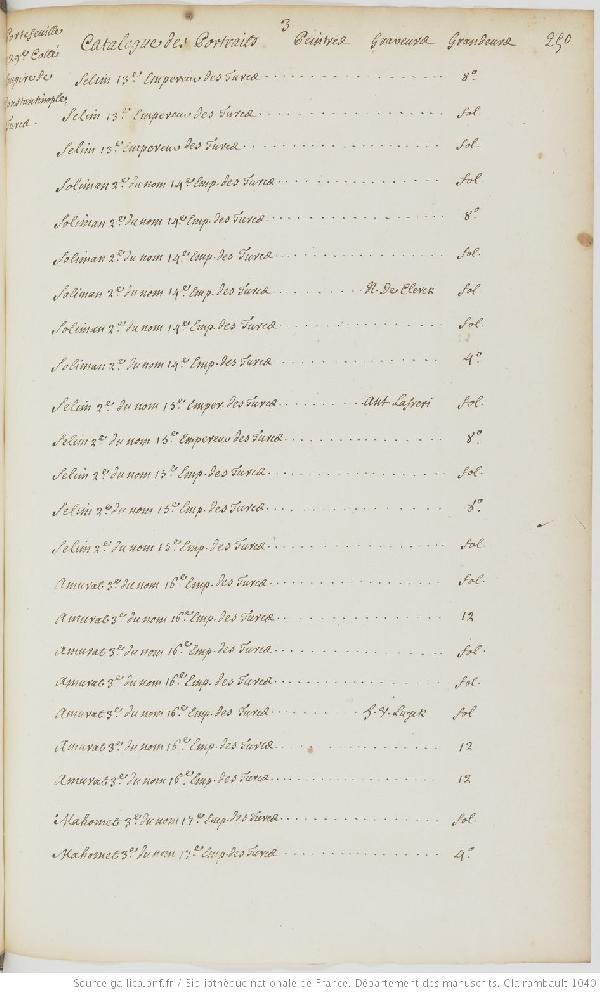 3
Portefeuille Catalogue des Portraits Peintres Graveurs Grandeurs 250
Empire de
Constantinople
Turcs.
Selim 13e. Empereur des Turcs 8o
Selim 13e. Empereur des Turcs fol.
Selim 13e Empereur des Turcs fol.
Soliman 2e. du nom 14e Emp. des Turcs fol.
Soliman 2e. du nom 14e Emp. des Turcs 8o
Soliman 2e. du nom 14e Emp. des Turcs fol.
Soliman 2e. du nom 14e Emp. des Turcs N. De Clerck fol
Soliman 2e. du nom 14e Emp. des Turcs fol.
Soliman 2e. du nom 14e Emp. des Turcs 4o
Selim 2e. du nom 15e Emper. des Turcs Ant Lafreri fol.
Selim 2e. du nom 15e Empereur des Turcs 8o
Selim 2e. du nom 15e Emp. des Turcs fol.
Selim 2e. du nom 15e Emp. des Turcs 8o
Selim 2e. du nom 15e Emp. des Turcs fol.
Amurat 3e. du nom 16e Emp. des Turcs fol.
Amurat 3e. du nom 16e Emp. des Turcs 12
Amurat 3e. du nom 16e Emp. des Turcs fol.
Amurat 3e. du nom 16e Emp. des Turcs fol.
Amurat 3e. du nom 16e Emp. des Turcs fol
Amurat 3e. du nom 16e Emp. des Turcs 12
Amurat 3e. du nom 16e Emp. des Turcs 12
Mahomet 3e. du nom 17e Emp. des Turcs fol.
Mahomet 3e. du nom 17e Emp. des Turcs 4o
Source gallica.bnf.fr / Bibliothèque nationale de France. Département des manuscrits. Clairambault 1040